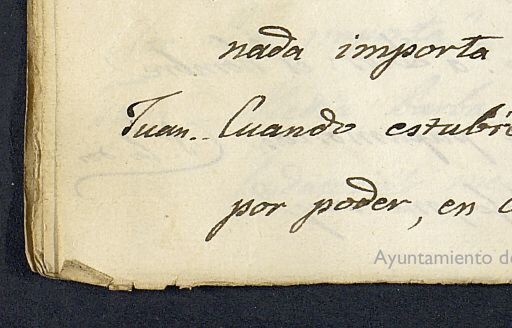 nada importa
Juan.. Cuando estubie
por poder, en
Ayuntamiento de